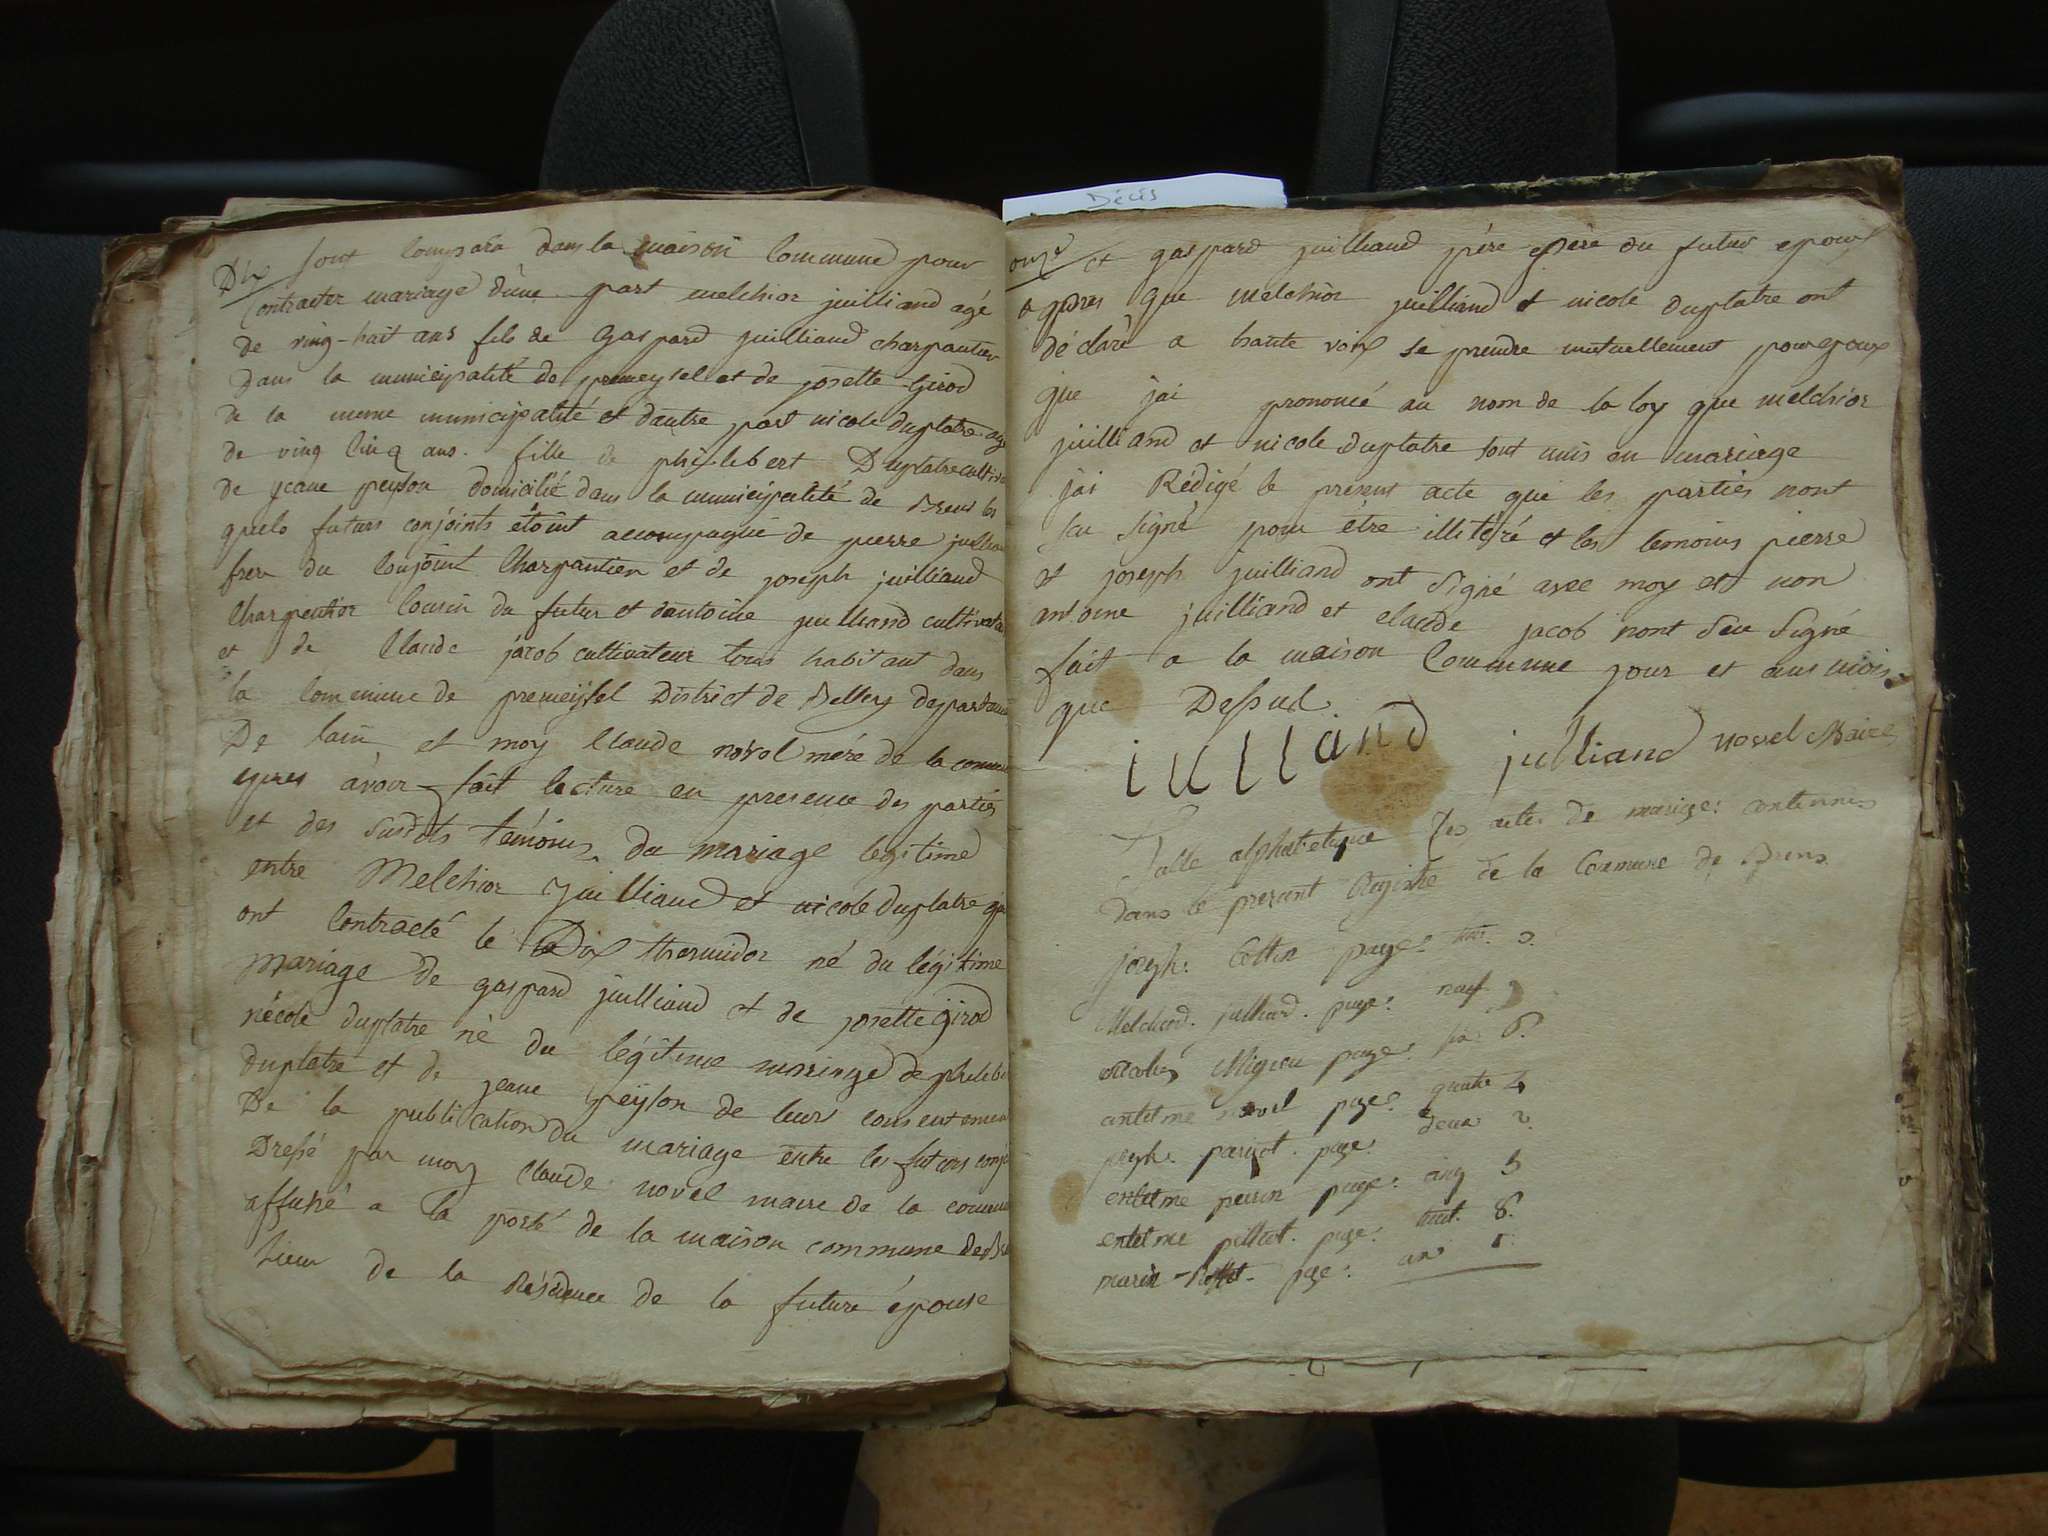 Décès
Dix
sont comparu dans la maison Commune pour
Contracter mariage d'une part melchior juilliand agé
de ving-huit ans fils de Gaspard juilliand charpantier
Dans la municipalité de premeysel et de josette Girod
de la meme municipalité et dautre part nicole duplatre agé
de ving Cinq ans. fille de philebert Duplatre cultiva
de jeane peyson domicilié dans la municipalité de Brens les
quels futurs conjoints étoint accompagné de pierre juilliand
frere du Conjoint Charpantier et de joseph juilliand
Charpentier Cousin du futur et dantoine juilliand cultivateur
et de Claude jacob cultivateur tous habitant dans
la Commune de premeysel District de Belley departeme
De lain et moy Claude novel mére de la commune
apres avoir fait lecture en presence des parties
et des susdits témoins du mariage legitime
entre Melchior Juilliand et nicole duplatre qui
ont Contracté le Dix thermidor né du légitime
mariage de gaspard juilliand et de josette girod
nécole duplatre né du légitime mariage de phileber
duplatre et de jeane peyson de leurs consentement
De la publication du mariage entre les futurs conjoi
Dressé par moy Claude novel maire de la commune
affiché a la porte de la maison commune de
Lieu de la Résidence de la future épouse
onze
et gaspard juilliand pére du futur epoux
apres que melchior juilliand et nicole duplatre ont
déclaré a haute voix se prendre mutuellement pour epoux
que jai prononcé au nom de la loy que melchior
juilliand et nicole duplatre sont unis en mariage
jai Rédigé le present acte que les parties nont
su signé pour être illiteré et les temoins pierre
et joseph juilliand ont signé avec moy et non
antoine juilliand et claude jacob nont seu signé
fait a la maison Commune jour et ans mois
que Dessus
iulliand julliand novel Maire
Table alphabetique des actes de mariage contennus
dans le present Registre de la Commune de Brens
joseph Cottin page
Melchior julliand page neuf 9
nicolas Migieu page six 6.
antelme novel page quatre 4
joseph parizot page deux 2.
entelme perrin page cinq 5
entelme pilliot page huit 8.
marin page un 1.